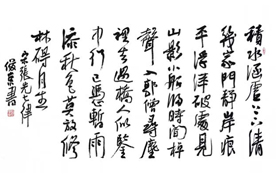 積水涵虛上下清
幾家門靜岸痕
平浮萍破處見
山影小船歸時聞艸
聲入郭僧尋塵
裡去過橋人似鑒
中行已憑暫雨
添秋色莫放修
林碍月生
宋張先七律
書